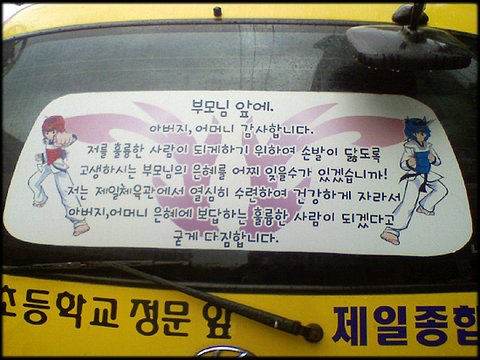 부모님 앞에.
아버지,어머니 감사합니다.
저를 훌륭한 사람이 되게하기 위하여 손발이 닳도록
고생하시는 부모의 은혜를 어찌 잊을수가 있겠습니까!
저는 제일체육관에서 열심히 수련하여 건강하게 자라서
아버지,어머니 은혜에 보답하는 훌륭한 사람이 되겠다고
굳게 다짐합니다.
초등학교 정문 앞 제일종합